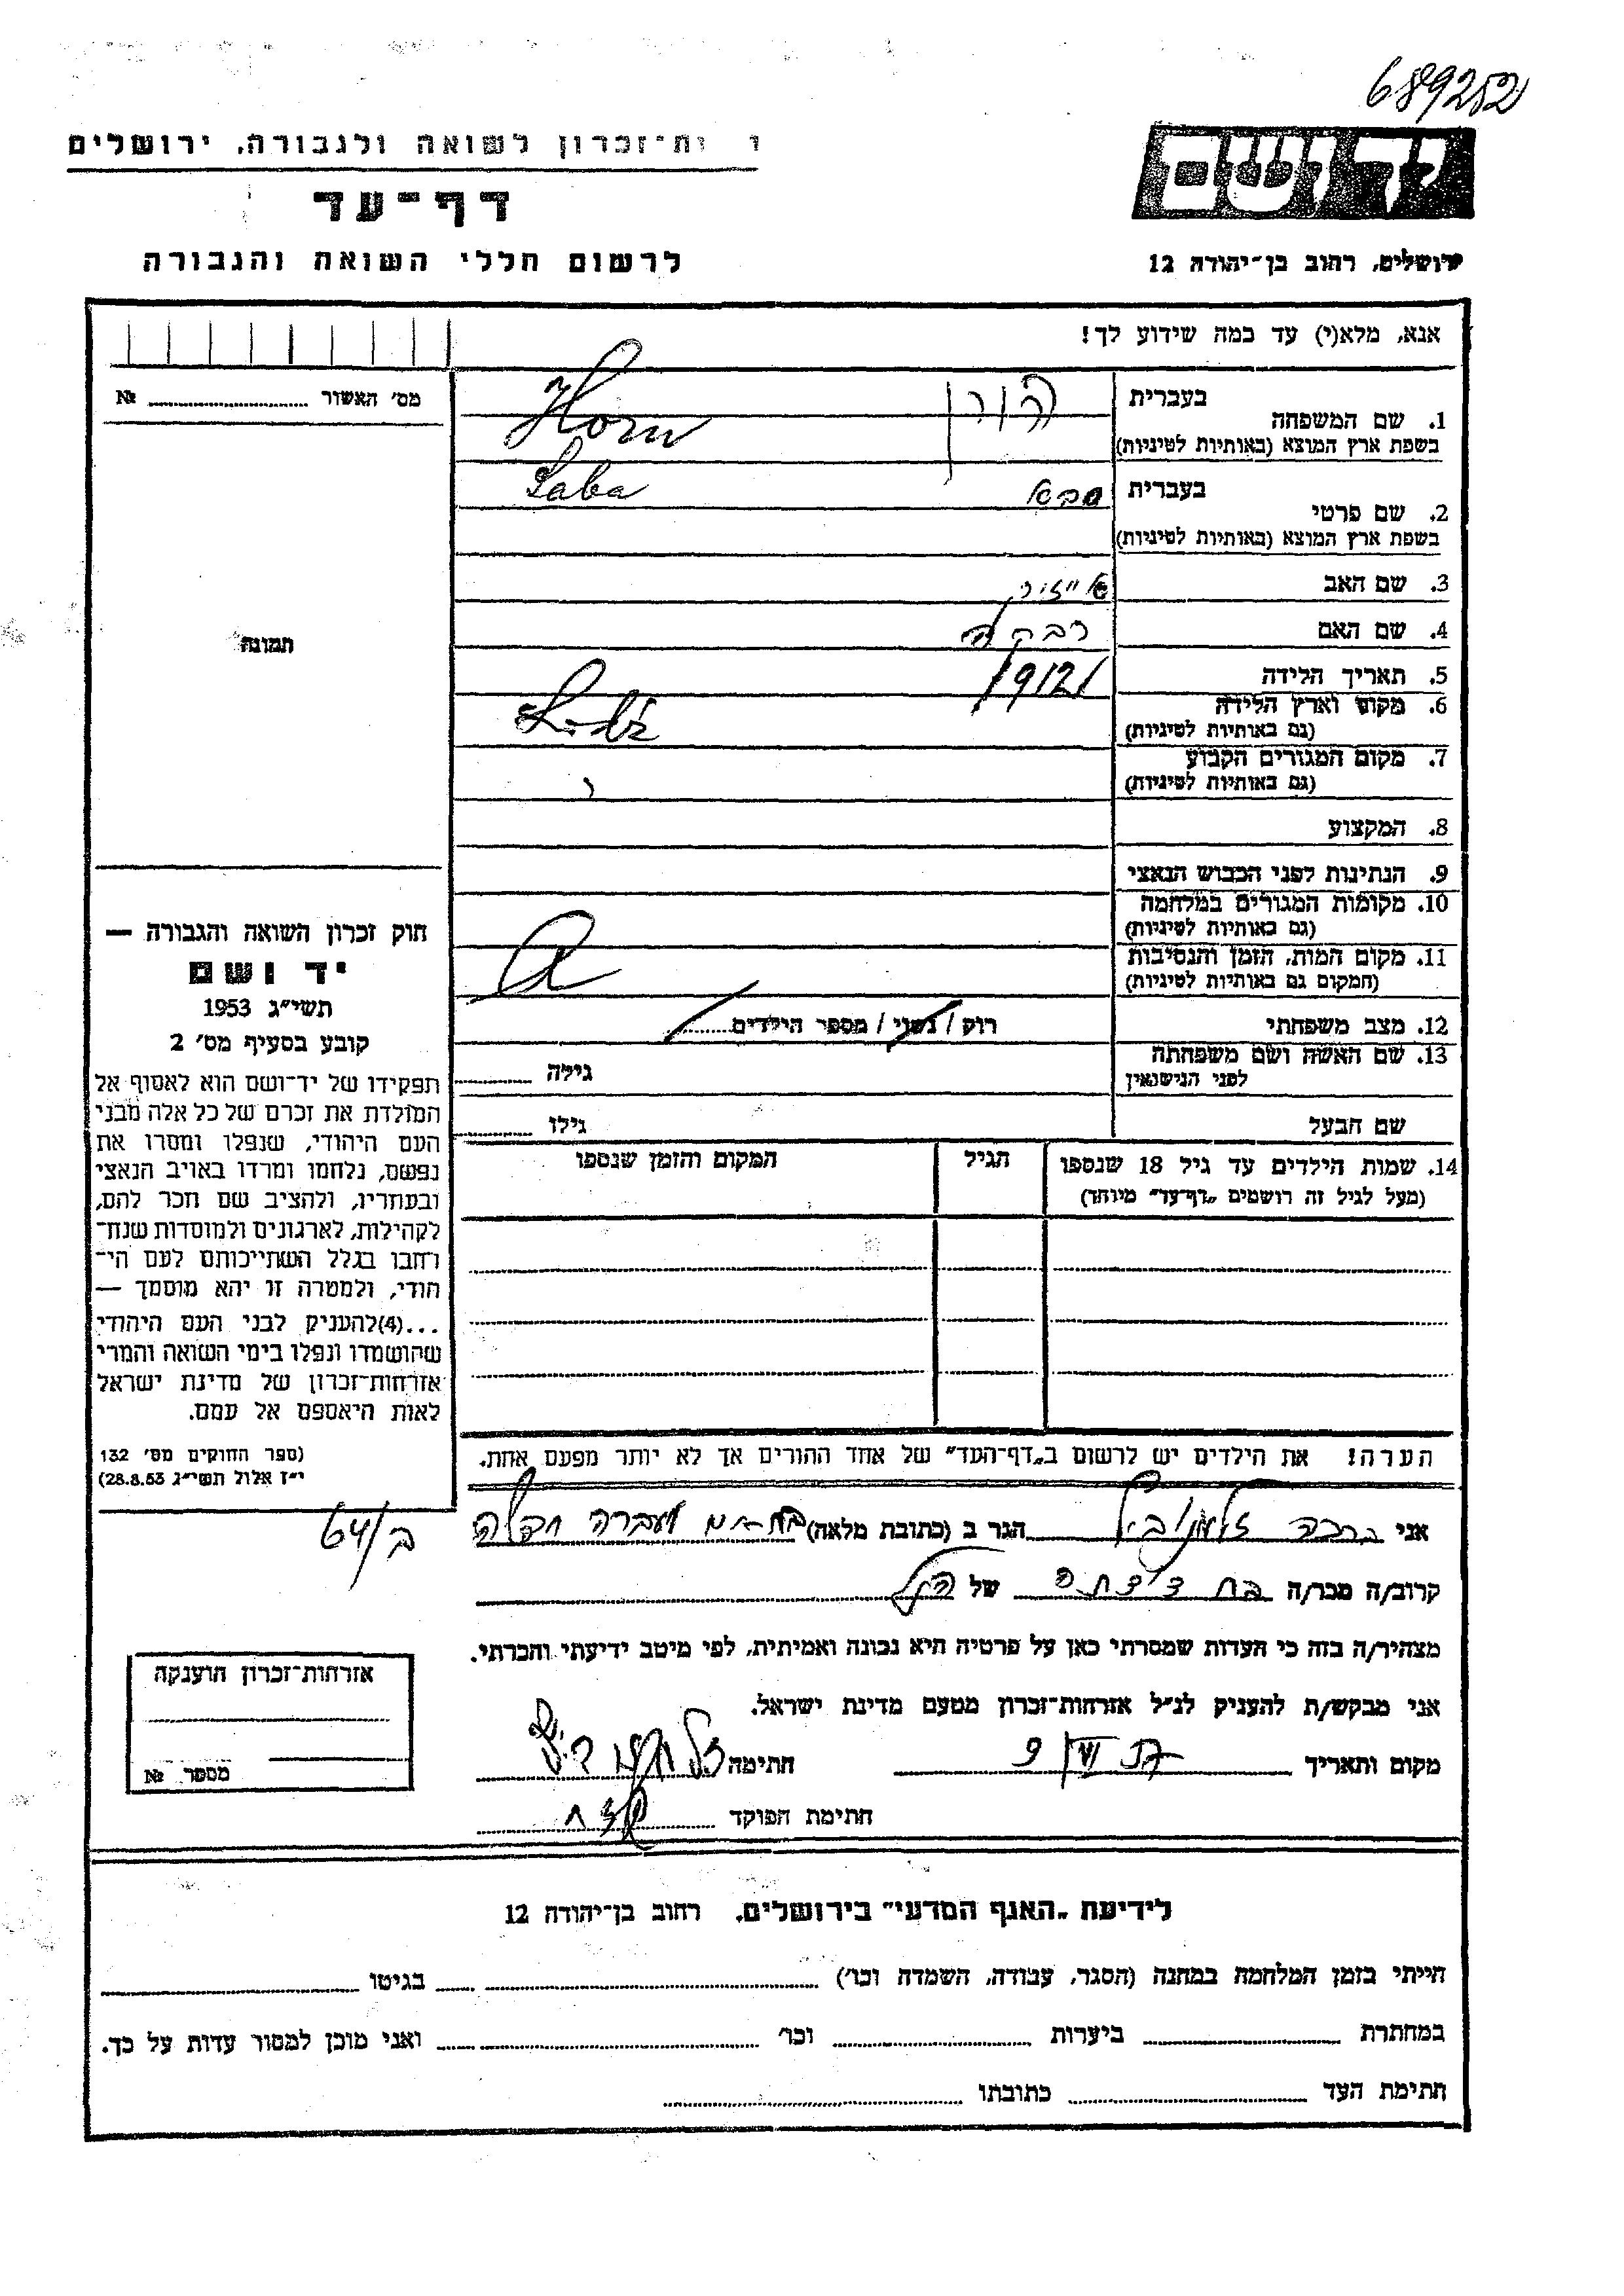 689252
יד ושם
ו ות-זכרון לשואה ולגבורה. ירושלים
דף-עד
ירושלים, רחוב בן-יהודה 12
לרשום חללי השואה והגבורה
אנא, מלא(י) עד כמה שידוע לך!
מס' האשור № 
בעברית הורן
1. שם המשפחה
בשפת ארץ המוצא (באותיות לטיניות) Horn
בעברית סבא
2. שם פרטי Saba
בשפת ארץ המוצא (באותיות לטיניות)
3. שם האב
4. שם האם רבקה
5. תאריך הלידה 1912
6. מקום וארץ הלידה
(גם באותיות לטיניות) Lodz
7. מקום המגורים הקבוע
(גם באותיות לטיניות)
8. המקצוע
9. הנתינות לפני הכבוש הנאצי
10. מקומות המגורים במלחמה
(גם באותיות לטיניות)
11. מקום המות, הזמן והנסיבות
(המקום גם באותיות לטיניות)
12. מצב משפחתי רוק / נשוי / מספר הילדים
13. שם האשה ושם משפחתה
לפני הנישואין גילה
שם הבעל גילו
14. שמות הילדים עד גיל 18 שנספו הגיל המקום והזמן שנספו
(מעל לגיל זה רושמים "דף-עד" מיוחד)
הערה! את הילדים יש לרשום ב"דף-העד" של אחד ההורים אך לא יותר מפעם אחת.
תמונה
חוק זכרון השואה והגבורה —
יד ושם
תשי"ג 1953
קובע בסעיף מס' 2
תפקידו של יד-ושם הוא לאסוף אל
המולדת את זכרם של כל אלה מבני
העם היהודי, שנפלו ומסרו את
נפשם, נלחמו ומרדו באויב הנאצי
ובעוזריו, ולהציב שם וזכר להם,
לקהילות, לארגונים ולמוסדות שנח-
רחבו בגלל השתייכותם לעם הי-
הודי, ולמטרה זו יהא מוסמך —
...(4)להעניק לבני העם היהודי
שהושמדו ונפלו בימי השואה והמרי
אזרחות-זכרון של מדינת ישראל
לאות היאספם אל עמם.
(ספר החוקים מס' 132
י"ז אלול תשי"ג 28.8.53)
64/ב
אני הגר ב (כתובת מלאה)
קרוב/ה מכר/ה בת דודתה של הנ"ל
מצהיר/ה בזה כי העדות שמסרתי כאן על פרטיה היא נכונה ואמיתית, לפי מיטב ידיעתי והכרתי.
אני מבקש/ת להעניק לנ"ל אזרחות-זכרון מטעם מדינת ישראל.
מקום ותאריך חתימה
חתימת הפוקד
אזרחות-זכרון הוענקה
מספר №
לידיעת "האגף המדעי" בירושלים, רחוב בן-יהודה 12
הייתי בזמן המלחמה במחנה (הסגר, עבודה, השמדה וכו') בגיטו
במחתרת ביערות וכו' ואני מוכן למסור עדות על כך.
חתימת העד כתובתו